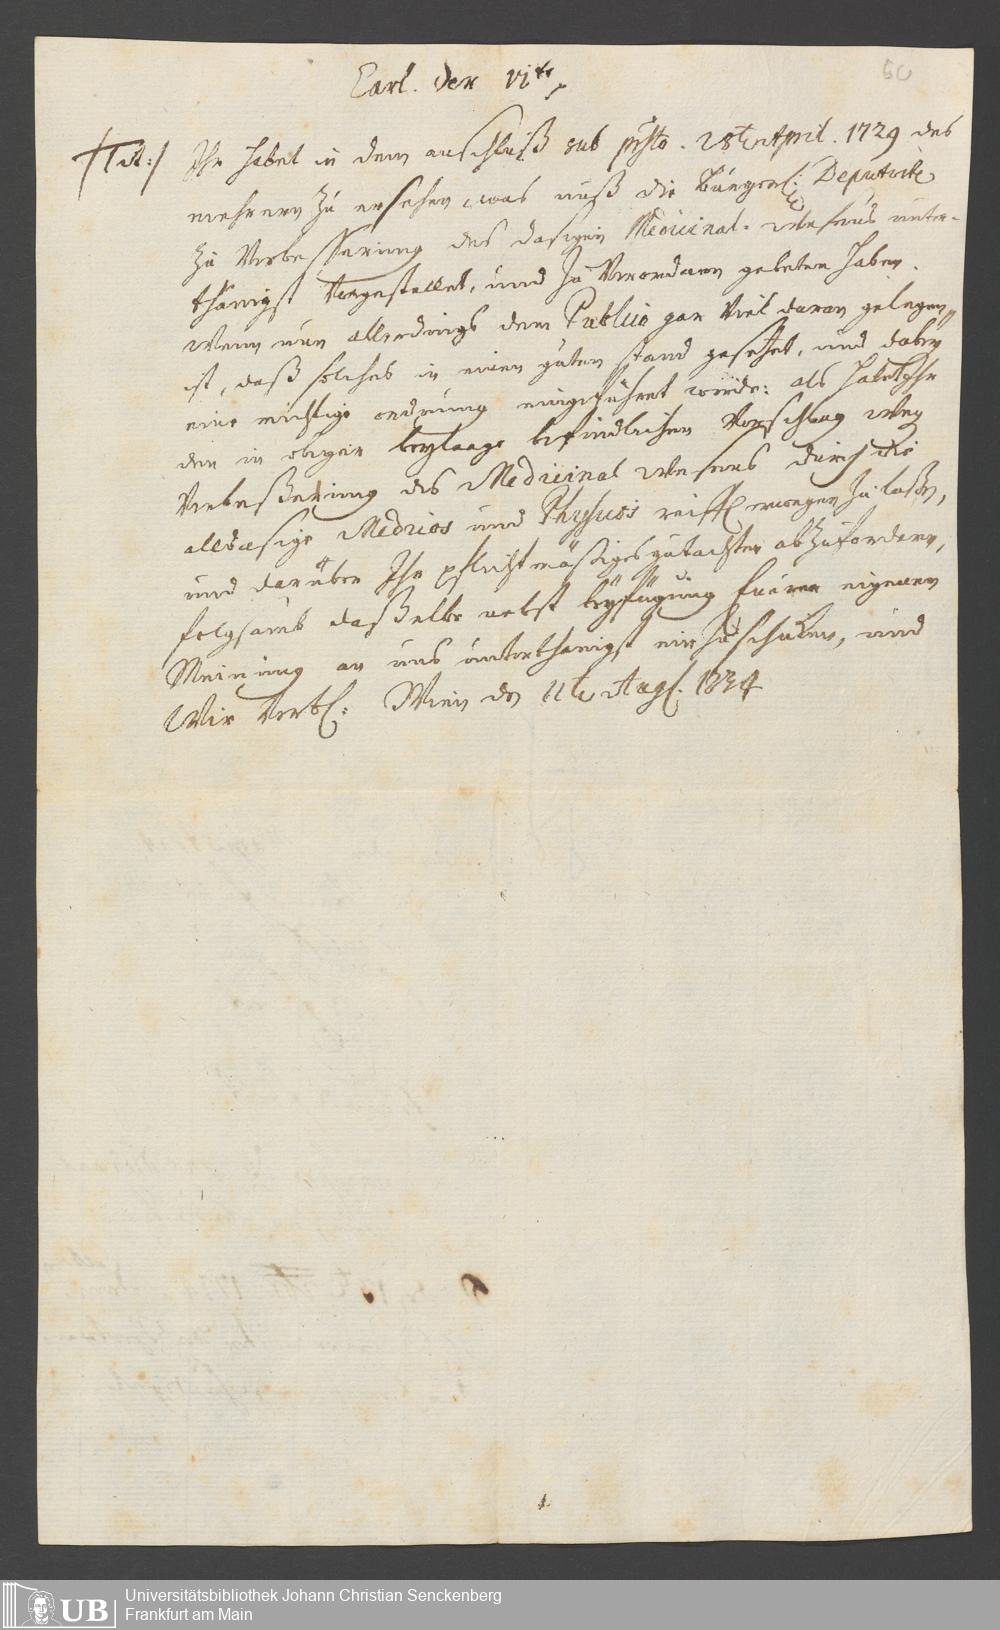 60
Carl. der VIte
/Tit:/ Ihr habet in dem anschluß sub psto. 28ten April. 1729 des
mehrern zu ersehen, was uns die Bürgerl: Deputirte
zu Verbesserung des dasigen Medicinal-Wesens unter-
thänigst vorgestellet, und zu Verordnen gebeten haben.
Wenn nun allerdings dem Publico gar viel daran gelegen
ist, daß solches in einen guten stand gesetzet, und dabey
eine richtige ordnung eingeführet werde: als habt Ihr
den in obiger beylaage befindlichen Vorschlag weg
Verbeßerung des Medicinal Wesens durch die
alldasige Medicos und Physicos reiffl. erwegen zu laßen,
und darüber Ihr pflichtmäßiges gutachten abzufordern,
folgsamb daßelbe nebst beyfügung Euerer eigenen
Meinung an uns unterthänigst einzuschicken, und
Wir verbl: Wien den 11te Aug. 1734
UB
Universitätsbibliothek Johann Christian Senckenberg
Frankfurt am Main